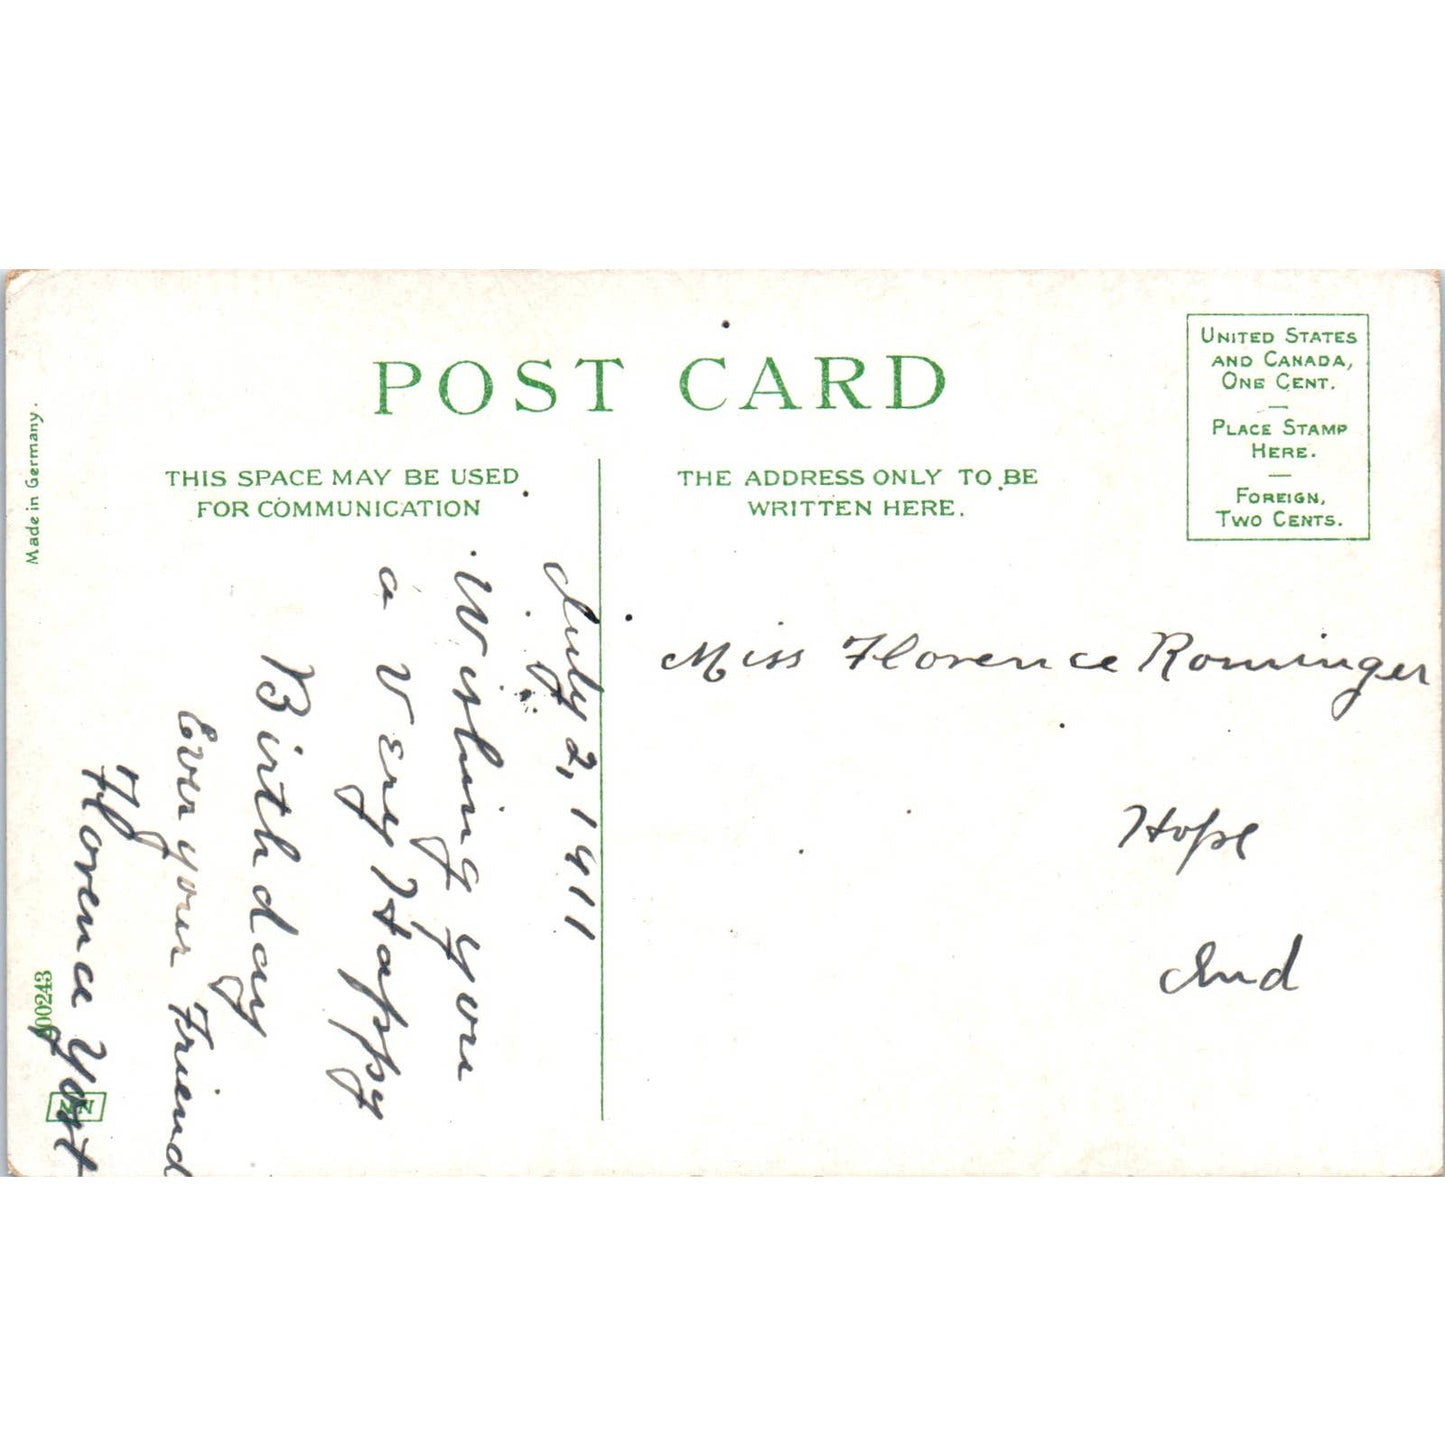 POST CARD
UNITED STATES
AND CANADA,
ONE CENT.
PLACE STAMP
HERE.
FOREIGN,
TWO CENTS.
THIS SPACE MAY BE USED
FOR COMMUNICATION
THE ADDRESS ONLY TO BE
WRITTEN HERE.
Made in Germany.
July 2, 1911
Wishing you
a Very Happy
Birthday
Ever your Friend
Florence Yost
Miss Florence Rominger
Hope
Ind
00243